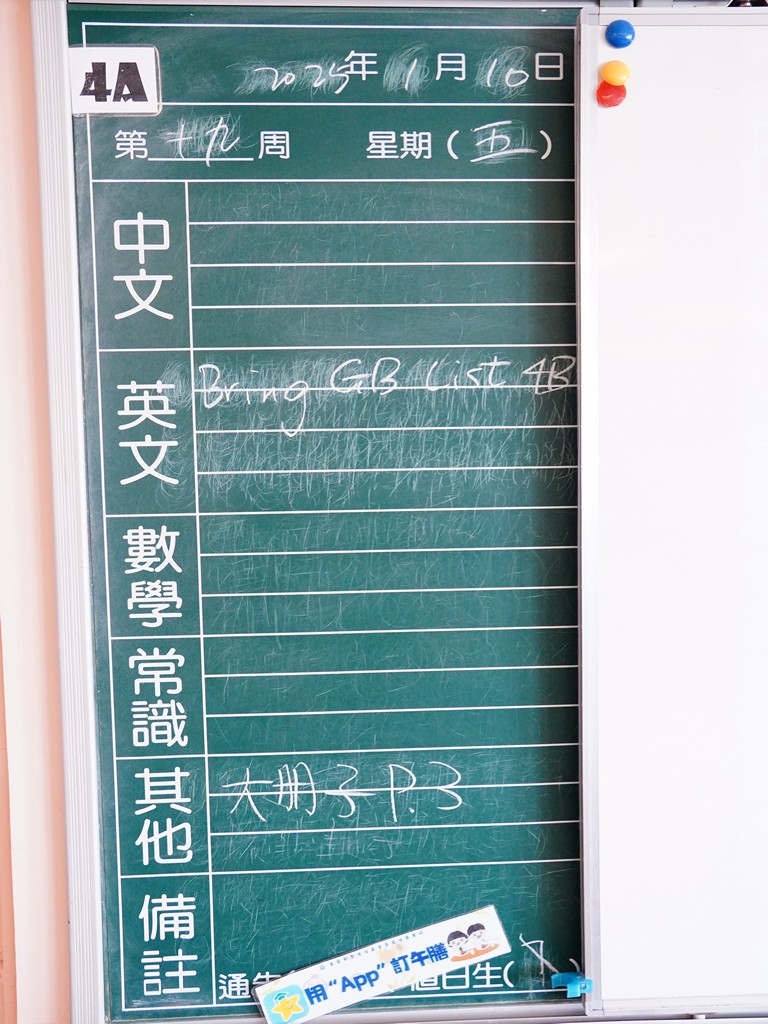 4A
2025年1月10日
第十九周 星期(五)
中文
英文 Bring GB List 4B
數學
常識
其他 大冊子 P.3
備註
通告 值日生( )
用“App”訂午膳